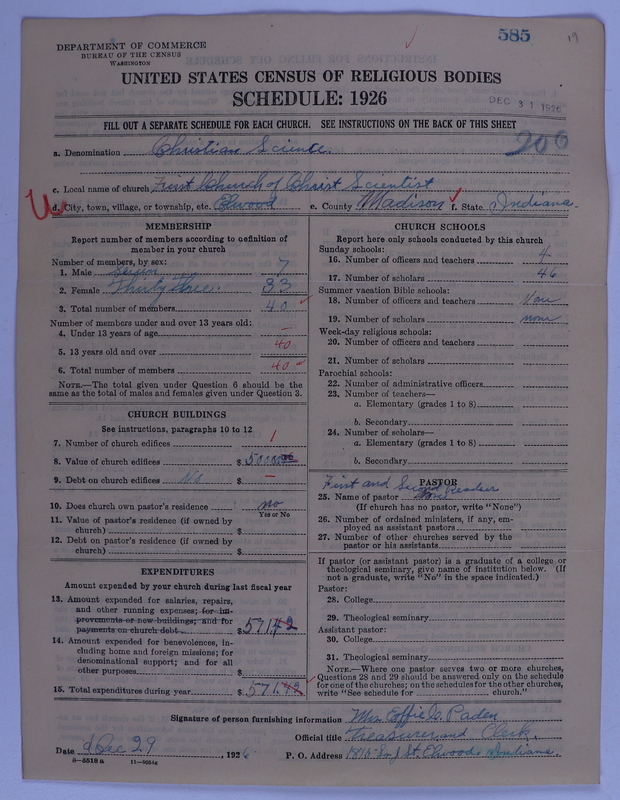 585
19
DEPARTMENT OF COMMERCE
BUREAU OF THE CENSUS
WASHINGTON
UNITED STATES CENSUS OF RELIGIOUS BODIES
SCHEDULE: 1926
DEC 31 1926
FILL OUT A SEPARATE SCHEDULE FOR EACH CHURCH. SEE INSTRUCTIONS ON THE BACK OF THIS SHEET
206
a. Denomination Christian Science.
c. Local name of church First Church of Christ Scientist
d. City, town, village, or township, etc. Elwood e. County Madison f. State Indiana.
MEMBERSHIP
Report number of members according to definition of
member in your church
Number of members, by sex:
1. Male Seven 7
2. Female Thirty Three. 33
3. Total number of members 40
Number of members under and over 13 years old:
4. Under 13 years of age –
5. 13 years old and over 40
6. Total number of members 40
NOTE.—The total given under Question 6 should be
same as the total of males and females given under Question 3.
CHURCH BUILDINGS
See instructions, paragraphs 10 to 12
7. Number of church edifices 1
8. Value of church edifices $
9. Debt on church edifices No $ –
10. Does church own pastor's residence no
Yes or No
11. Value of pastor's residence (if owned by
church) $
12. Debt on pastor's residence (if owned by
church) $
EXPENDITURES
Amount expended by your church during last fiscal year
13. Amount expended for salaries, repairs,
and other running expenses; for im-
provements or new buildings; and for
payments on church debt $
14. Amount expended for benevolences, in-
cluding home and foreign missions; for
denominational support; and for all
other purposes $
15. Total expenditures during year $
CHURCH SCHOOLS
Report here only schools conducted by this church
Sunday schools:
16. Number of officers and teachers 4
17. Number of scholars 46
Summer vacation Bible schools:
18. Number of officers and teachers None
19. Number of scholars none
Week-day religious schools:
20. Number of officers and teachers
21. Number of scholars
Parochial schools:
22. Number of administrative officers
23. Number of teachers—
a. Elementary (grades 1 to 8)
b. Secondary
24. Number of scholars—
a. Elementary (grades 1 to 8)
b. Secondary
PASTOR
First and Second Reader
25. Name of pastor None
(If church has no pastor, write "None")
26. Number of ordained ministers, if any, em-
ployed as assistant pastors
27. Number of other churches served by the
pastor or his assistants
If pastor (or assistant pastor) is a graduate of a college or
theological seminary, give name of institution below. (If
not a graduate, write "No" in the space indicated.)
Pastor:
28. College
29. Theological seminary
Assistant pastor:
30. College
31. Theological seminary
NOTE.—Where one pastor serves two or more churches,
Questions 28 and 29 should be answered only on the schedule
for one of the churches; on the schedules for the other churches,
write "See schedule for church."
Signature of person furnishing information Mrs Effie G. Paden
Official title Treasurer and Clerk.
Date Dec 29, 1926 P. O. Address St. Elwood Indiana.
8—5518 a 11—9354a